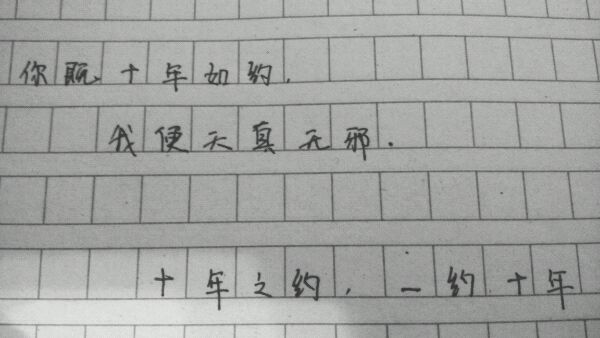 你既十年如约.
我便天真无邪.
十年之约,一约十年